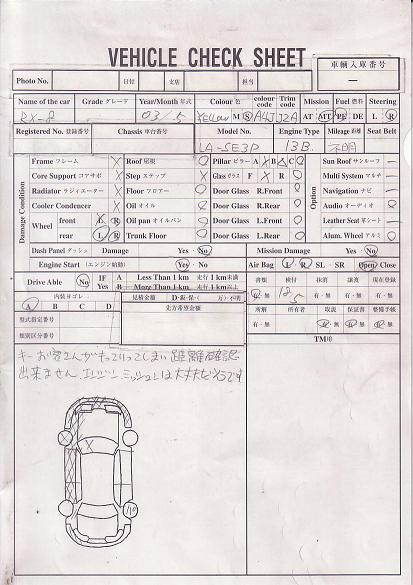 VEHICLE CHECK SHEET
車輌入庫番号
Photo No. 日付 支店 担当 —
Name of the car Grade グレード Year/Month 年式 Colour 色 colour code Trim code Mission Fuel 燃料 Steering
RX-8 03/5 Yellow M S A4J J2A AT MT PE DE L R
Registered No. 登録番号 Chassis 車台番号 Model No. Engine Type Mileage 距離 Seat Belt
LA-SE3P 13B 不明
Frame フレーム Roof 屋根 Pillar ピラー A X B C O Sun Roof サンルーフ —
Core Support コアサポ Step ステップ X Glass ガラス F X R Multi System マルチ —
Radiator ラジィエーター Floor フロアー Door Glass R.Front Navigation ナビ —
Cooler Condencer Oil オイル Door Glass R.Rear Audio オーディオ
Wheel front L R Oil pan オイルパン Door Glass L.Front Leather Seat 革シート —
rear L R Trunk Floor Door Glass L.Rear Alum. Wheel アルミ
Damage Condition
Option
Dash Panel ダッシュ Damage Yes · No Mission Damage Yes · No
Engine Start (エンジン始動) Yes No Air Bag L R SL · SR Open / Close
Drive Able No IF A Less Than 1 km 走行 1 km未満
Yes B More Than 1 km 走行 1 km以上
書類 検付 抹消 譲渡 現在登録
内装ヨゴレ 見積金額 D·銀·保·( 万) 不明
有 · 無 18/5 有 · 無 有 · 無 有 · 無
A B C D 先方希望金額
型式指定番号
所解 所有者 取説 保証書 整備手帳
類別区分番号
有 · 無 有 · 無 有 · 無 有 · 無
TM用
キーお客さんがもっていってしまい 距離確認
出来ません エンジン ミッションは大丈夫だそうです